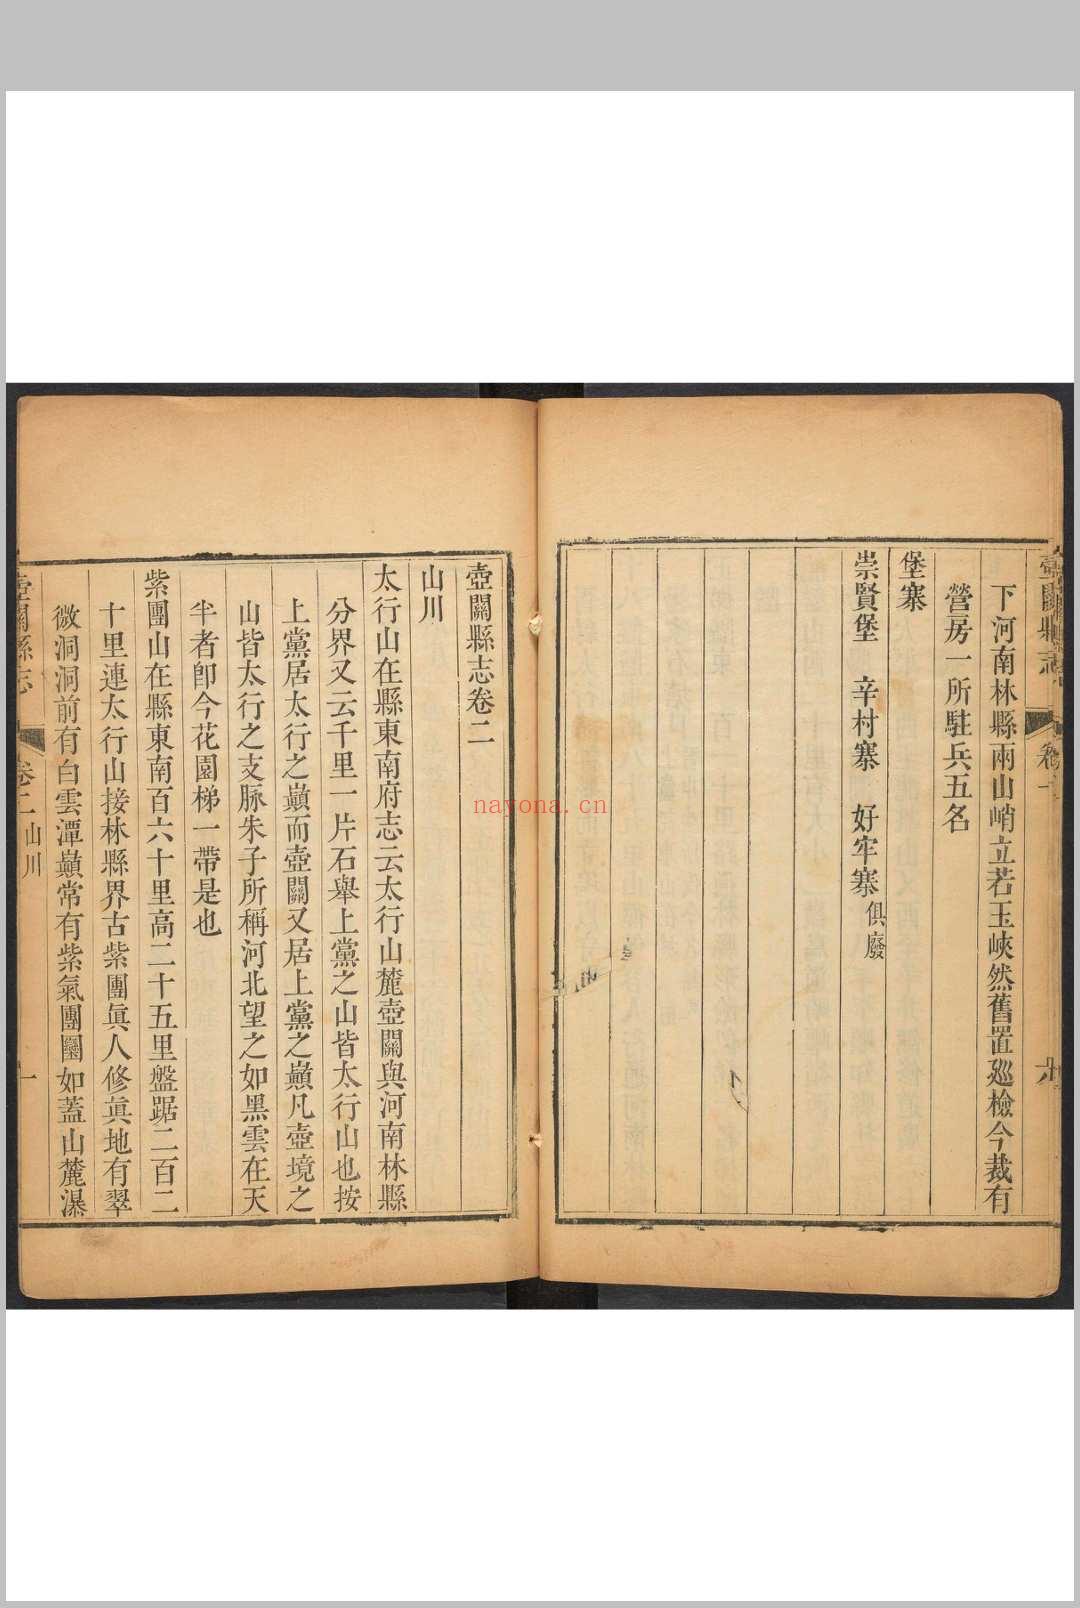 壺關縣志
卷一
下河南林縣兩山峭立若玉峽然舊置廵檢今裁有
營房一所駐兵五名
堡寨
崇賢堡 辛村寨 好牢寨俱廢
壺關縣志卷二
山川
太行山在縣東南府志云太行山麓壺關與河南林縣
分界又云千里一片石舉上黨之山皆太行山也按
上黨居太行之巔而壺關又居上黨之巔凡壺境之
山皆太行之支脈朱子所稱河北望之如黑雲在天
半者卽今花園梯一帶是也
紫團山在縣東南百六十里高二十五里盤踞二百二
十里連太行山接林縣界古紫團眞人修眞地有翠
微洞洞前有白雲潭巔常有紫氣團團如蓋山麓瀑
壺關縣志
卷二 山川
一
nayona.cn